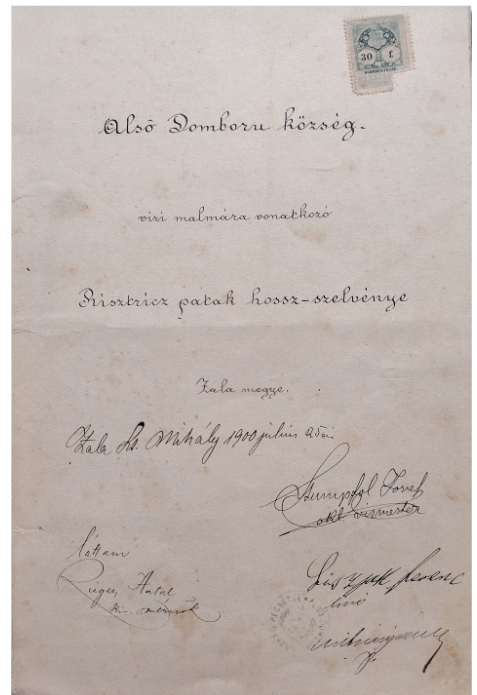 30 f.
Alsó Domboru község.
vizi malmára vonatkozó
Bisztricz patak hossz-szelvénye
Zala megye.
Zala Sz. Mihály 1900 július 25én
Stumpfol József
okl. vizmester
láttam
Rieger Antal
kir.
Ferenc